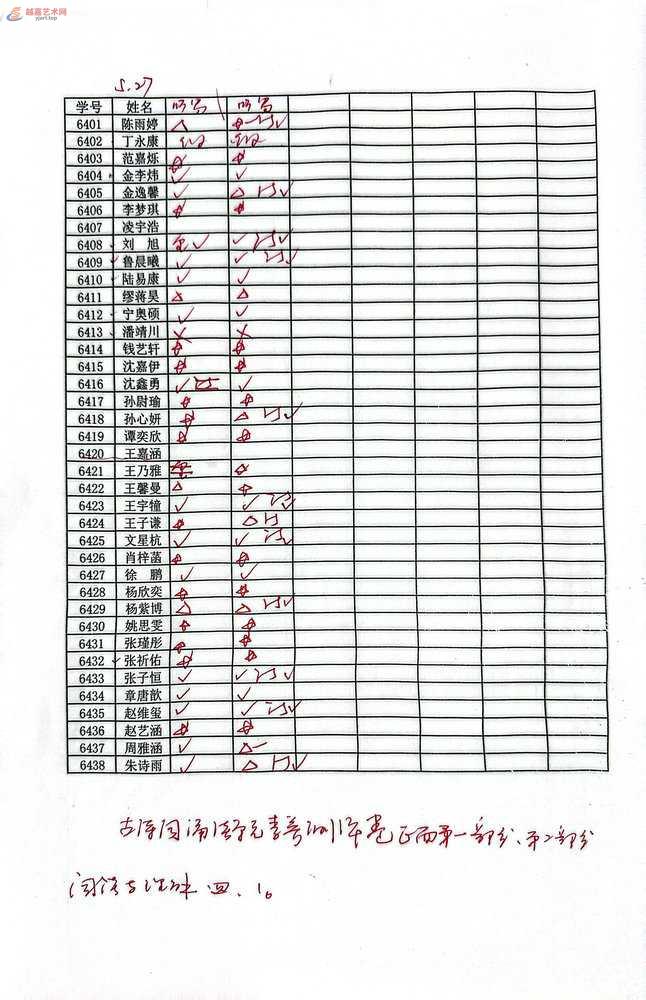 越嘉艺术网
yjart.top
5.27
学号 姓名 听写 听写
6401 陈雨婷 △ ☆ 订 ✓
6402 丁永康
6403 范嘉烁 ☆ ☆
6404 金李炜 ✓ ✓
6405 金逸馨 ✓ △ 订 ✓
6406 李梦琪 ☆ ☆
6407 凌宇浩
6408 刘旭 ✓ ✓ 订 ✓
6409 鲁晨曦 ✓ ✓ 订 ✓
6410 陆易康 ✓ ✓
6411 缪蒋昊 △ △
6412 宁奥硕 ✓ ✓
6413 潘靖川 ✗ ✗
6414 钱艺轩 ☆ ☆
6415 沈嘉伊 ☆ ☆
6416 沈鑫勇 ✓ 订 ✓
6417 孙尉瑜 ☆ ☆
6418 孙心妍 ☆ △ 订 ✓
6419 谭奕欣 ☆ ☆
6420 王嘉涵
6421 王乃雅 ☆
6422 王馨曼 △ ☆
6423 王宇犝 ✓ ✓ 订 ✓
6424 王子谦 ☆ △ 订
6425 文星杭 ✓ ✓ 订 ✓
6426 肖梓菡 ☆ ☆
6427 徐鹏 ✓ ✓
6428 杨欣奕 ☆ ☆
6429 杨紫博 △ △ 订 ✓
6430 姚思雯 ☆ ☆
6431 张瑾彤 ☆ ☆
6432 张祈佑 ☆ ☆
6433 张子恒 ✓ ✓ 订 ✓
6434 章唐歆 ✓ ✓
6435 赵维玺 ✓ ✓ 订 ✓
6436 赵艺涵 ☆ ☆
6437 周雅涵 ✓ △
6438 朱诗雨 ✓ △ 订 ✓
古诗 诵 卷正面第一部分、第2部分
阅读 四、1。